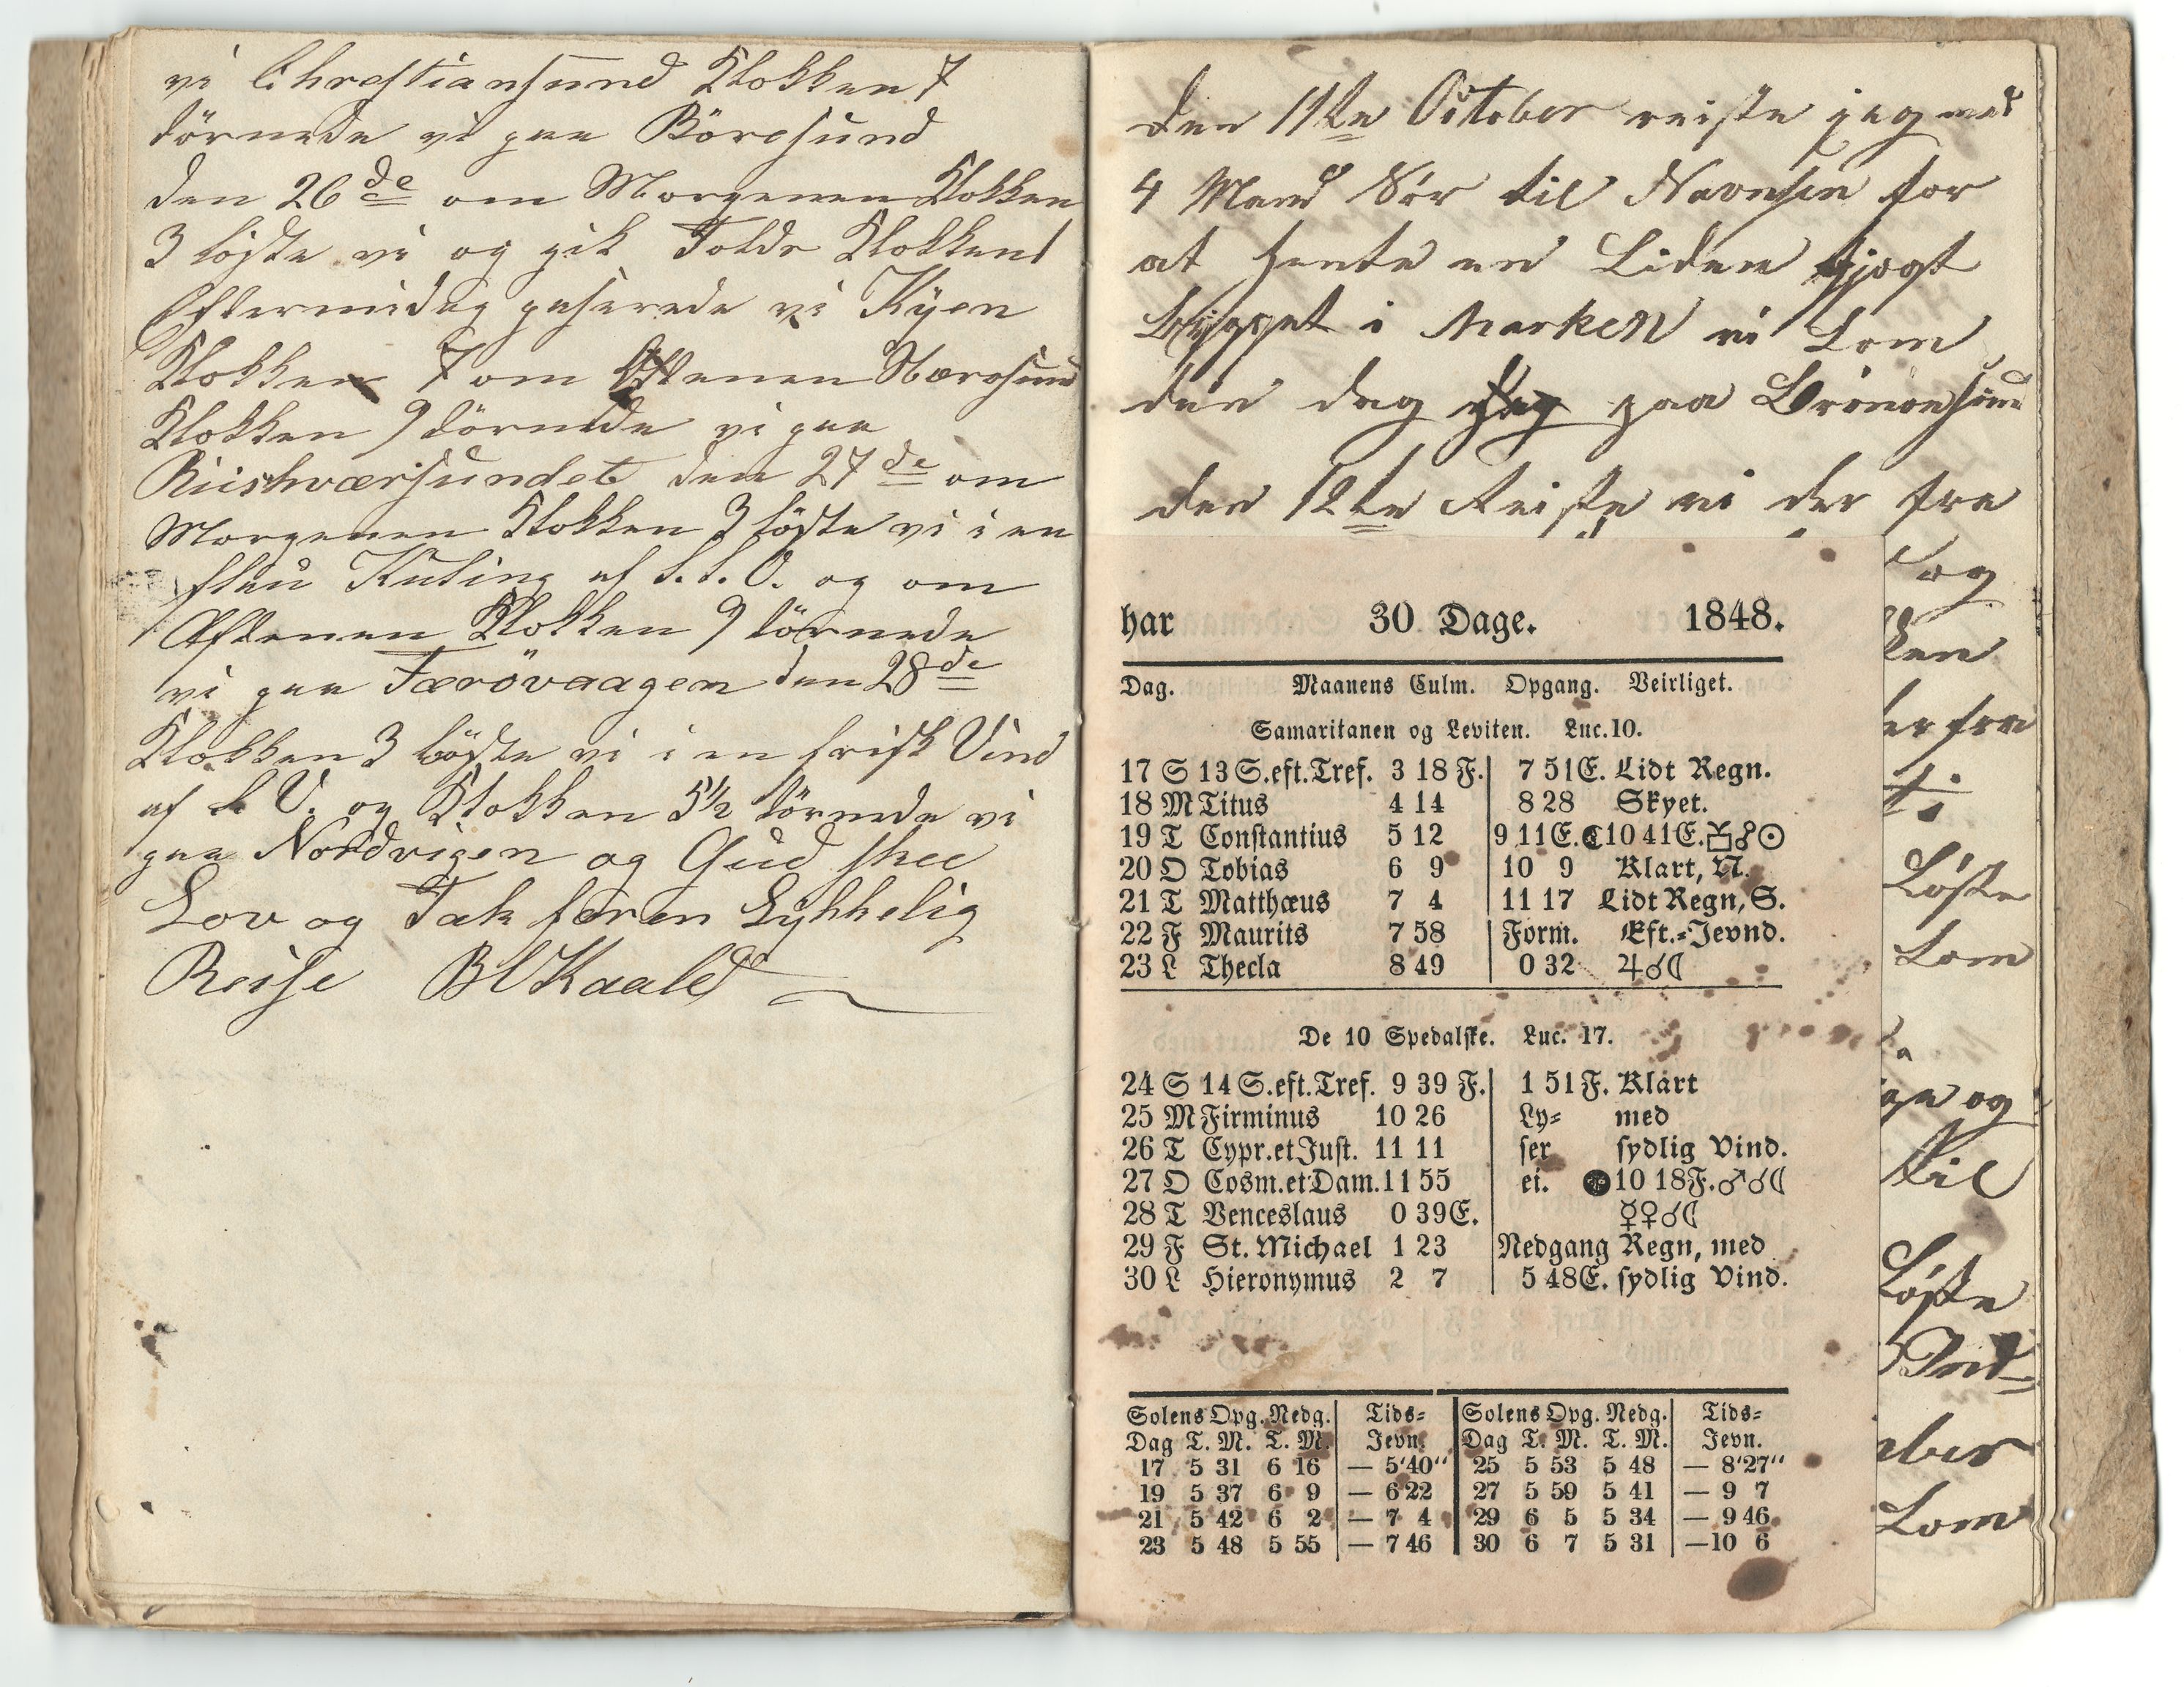 vi Chrestiansund Klokken 7
törnede vi paa Börøsund
den 26de om Morgenen Klokken
3 löste vi og gik Folde Klokken 1
Eftermidag paserede vi Kÿen
Klokken 7 om Aftenen Nærøsund
Klokken 9 törnede vi paa
Riishværsundet den 27de om
Morgenen Klokken 3 löste vi i en
flau Kuling af S.S.O. og om
Aftenen Klokken 9 törnede
vi paa Færövaagen den 28de
Klokken 3 löste vi i en frisk Vind
af S.V. og Klokken 5½ törnede vi
paa Nordvigen og Gud skee
Lov og Tak for en Lykkelig
Reise BCKaald
den 11te October reiste jeg med
4 Mand Sör til Navnsen for
at hente en Liden Gjægt
bÿgget i Marken vi kom
den dag paa Brönøesund
den 12te Reiste vi der fra
og
ken
er fra
ti
Löste
kom
ge og
til
Löste
Ind
ber
kom
har 30 Dage. 1848.
Dag. Maanens Culm. Opgang. Veirliget.
Samaritanen og Leviten. Luc. 10.
17 S 13 S. eft. Tref. 3 18 F. 7 51 E. Lidt Regn.
18 M Titus 4 14 8 28 Skyet.
19 T Constantius 5 12 9 11 E. ☾ 10 41 E. ☍☉
20 O Tobias 6 9 10 9 Klart, N.
21 T Matthæus 7 4 11 17 Lidt Regn, S.
22 F Maurits 7 58 Form. Eft.-Jevnd.
23 L Thecla 8 49 0 32 ♃☌☾
De 10 Spedalske. Luc. 17.
24 S 14 S. eft. Tref. 9 39 F. 1 51 F. Klart
25 M Firminus 10 26 Ly= med
26 T Cypr. et Just. 11 11 ser sydlig Vind.
27 O Cosm. et Dam. 11 55 ei. ● 10 18 F. ♂☌☾
28 T Venceslaus 0 39 E. ☿♀☌☾
29 F St. Michael 1 23 Nedgang Regn, med
30 L Hieronymus 2 7 5 48 E. sydlig Vind.
Solens Opg. Nedg. Tids= Solens Opg. Nedg. Tids=
Dag T. M. T. M. Jevn. Dag T. M. T. M. Jevn.
17 5 31 6 16 — 5'40" 25 5 53 5 48 — 8'27"
19 5 37 6 9 — 6 22 27 5 59 5 41 — 9 7
21 5 42 6 2 — 7 4 29 6 5 5 34 — 9 46
23 5 48 5 55 — 7 46 30 6 7 5 31 —10 6